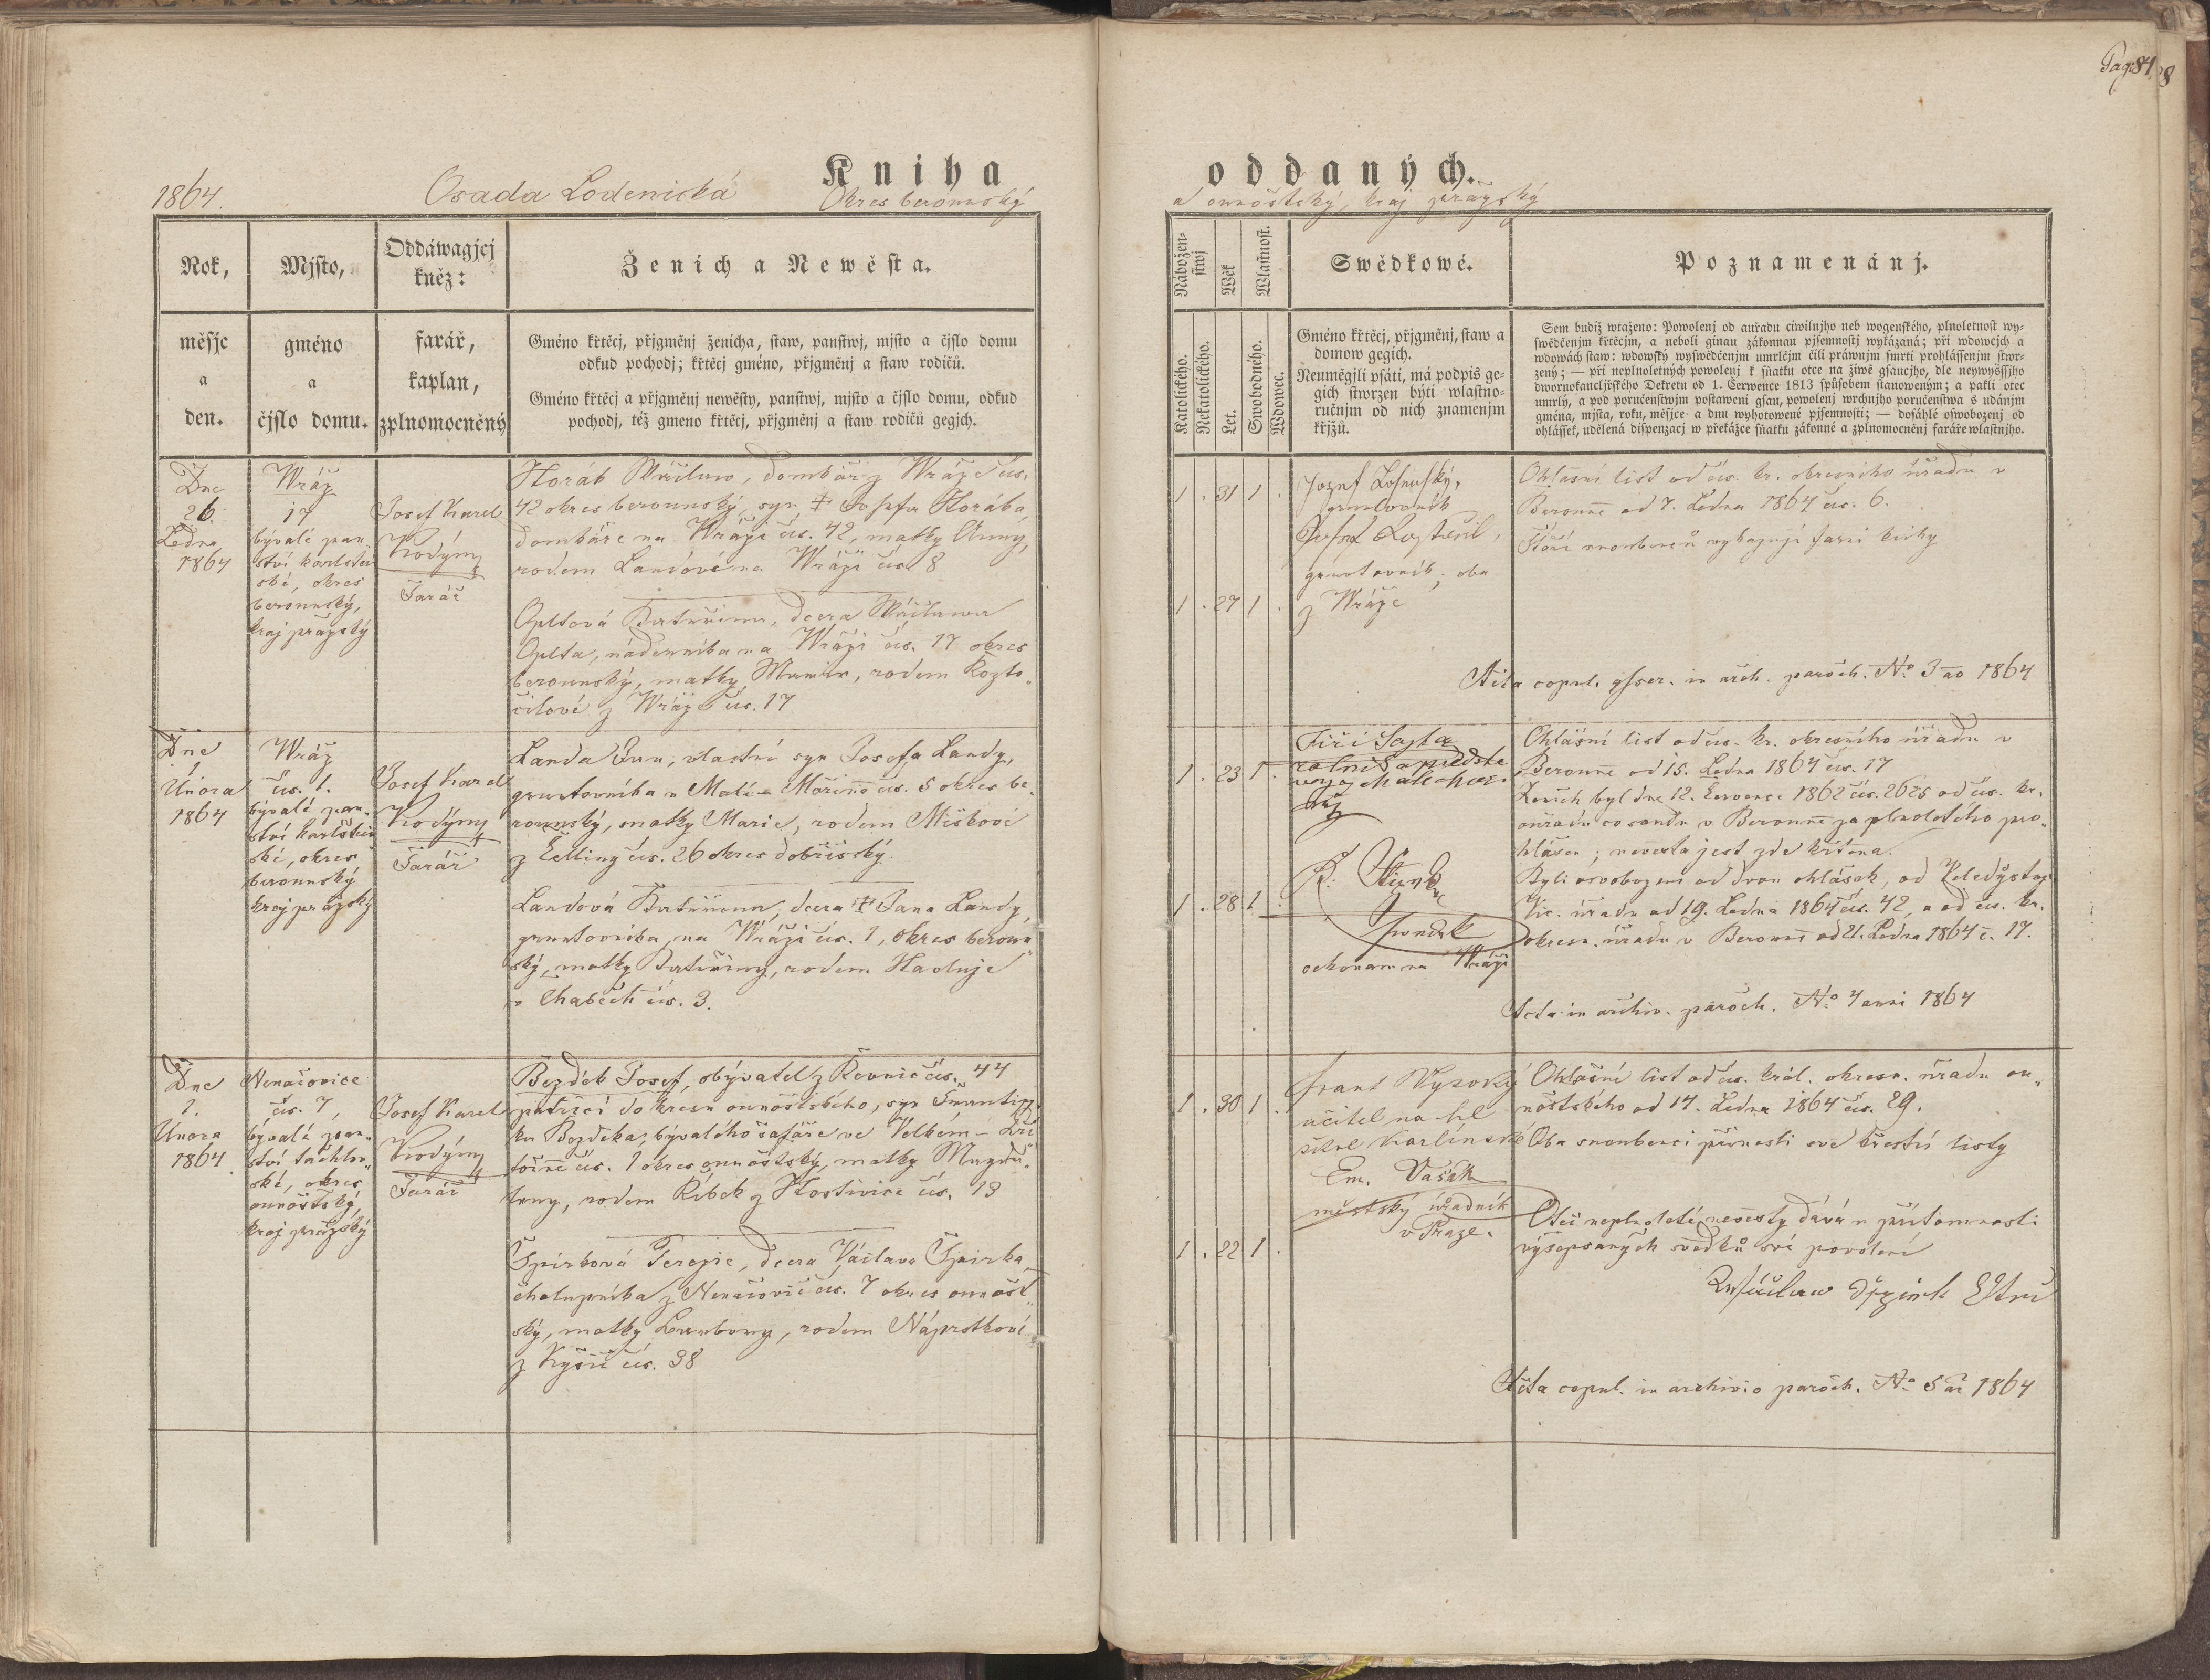 Pag. 84
Kniha oddaných.
1864. Osada Lodenická Okres berounský
aounoštský, kraj pražský
Rok,
měsjc
a
den.
Mjsto,
gméno
a
čjslo domu.
Oddáwagjcj
kněz:
farář,
kaplan,
zplnomocněný
Ženich a Newěsta.
Gméno křtěcj, přjgměnj ženicha, staw, panstwj, mjsto a čjslo domu
odkud pochodj; křtěcj gméno, přjgměnj a staw rodičů.
Gméno křtěcj a přjgměnj newěsty, panstwj, mjsto a čjslo domu, odkud
pochodj, též gmeno křtěcj, přjgměnj a staw rodičů gegjch.
Nábožen-
stwj
Katolického.
Nekatolického.
Wěk
Let.
Wlastnost.
Swobodného.
Wdowec.
Swědkowé.
Gméno křtěcj, přjgměnj, staw a
domow gegich.
Neumějli psáti, má podpis ge-
gich stwrzen býti wlastno-
ručnjm od nich znamenjm
křjžů.
Poznamenánj.
Sem budiž wtaženo: Powolenj od auřadu ciwilnjho neb wogenského, plnoletnost wy-
swědčenjm křtěcjm, a neboli ginau zákonnau pjsemnostj wykázaná; při wdowcjch a
wdowách staw: wdowský wyswědčenjm umrlčjm čili práwnjm smrti prohlássenjm stwr-
zený; — při neplnoletných powolenj k sňatku otce na žiwě gsaucjho, dle neywyššjho
dwornokancljřského Dekretu od 1. Čerwence 1813 spůsobem stanoweným; a pakli otec
umrlý, a pod poručenstwjm postaweni gsau, powolenj wrchnjho poručenstwa s udánjm
gména, mjsta, roku, měsjce a dnu wyhotowené pjsemnosti; — dosáhlé oswobozenj od
ohlássek, udělená dispenzacj w překážce sňatku zákonné a zplnomocněnj faráře wlastnjho.
Dne
26.
Ledna
1864
Wráž
17
bývalé pan-
ství karlštein
ské, okres
berounský,
kraj pražský
Josef Karel
Kodým
Farář
Horáb Wáclaw, domkář z Wráže čis.
42 okres berounský, syn † Josefa Horába,
domkáře na Wráži čis. 42, matky Anny,
rodem Landové na Wráži čis. 8
Opltová Kateřina, dcera Wáclawa
Oplta, nádenníka na Wráži čis. 17 okres
berounský, matky Marie, rodem Rozto-
čilové z Wráže čis. 17
1 . 31 1 .
1 . 27 1 .
gruntovník
gruntovník, oba
z Wráže
Ohlašní list od čis. kr. okresního úřadu v
Berouně od 7. Ledna 1864 čis. 6.
Stáří snoubenců vykazují farní knihy
Acta copul. in arch. paroch. No 3 ao 1864
Dne
Února
1864
Wráž
čis. 1.
bývalé pan-
ství karlštein
ské, okres
berounský
kraj pražský
Josef Karel
Kodým
Farář
Landa Jan, vlastní syn Josefa Landy,
gruntovníka v Malé Mořině čis. 5 okres be-
rounský, matky Marie, rodem Miškové
z Čelliny čis. 26 okres dobříšský.
Landová Kateřina, dcera † Jana Landy,
gruntovníka na Wráži čis. 1, okres beroun
ský, matky Kateřiny, rodem Haoluje
v Chabech čis. 3.
1 . 23 1 .
1 . 28 1 .
Jiří Sajta
rolník a předsta
ochonam na Wráži
Ohlašní list od čis. kr. okresního úřadu v
Berouně od 15. Ledna 1864 čis. 17
Ženich byl dne 12. Července 1862 čis. 2625 od čis. kr.
ouřadu co soudu v Berouně za plnoletého pro-
hlášen; nevěsta jest zde křtěna.
Byli osvobozeni od dvou ohlášek, od
Vic. úřadu od 19. Ledna 1864 čis. 42, a od čis. kr.
okresn. úřadu v Berouně od 21. Ledna 1864 č. 17.
Acta in archiv. paroch. No 4 anni 1864
Dne
1.
Února
1864
Nenačovice
čis. 7,
bývalé pan-
ství tachlov-
ské, okres
ounoštský,
kraj pražský
Josef Karel
Kodým
Farář
Bezděk Josef, obývatel z Řevnic čis. 44
patřící do kresu ounoštského, syn Františ-
ka Bezděka, bývalého šafáře ve Velkém-
čis. 1 okres ounoštský, matky Magda-
leny, rodem Ribek z Hostivice čis. 13
Špirková Terezie, dcera Václava Špirka,
chalupníka z Nenačovic čis. 7 okres ounošt
ský, matky rodem Náprstkové
z Kyšic čis. 38
1 . 30 1 .
1 . 22 1 .
Frant Vysoký
učitel na hl
škole Karlínské
Em. Vašák
městský úředník
v Praze.
Ohlašní list od čis. král. okresn. úřadu ou-
noštského od 14. Ledna 1864 čis. 29.
Oba snoubenci přinesli své křestní listy
Otec neplnoleté nevěsty dává v přítomnosti
výsepsaných svědků své povolení
Acta copul. in archivio paroch. No 5 a: 1864